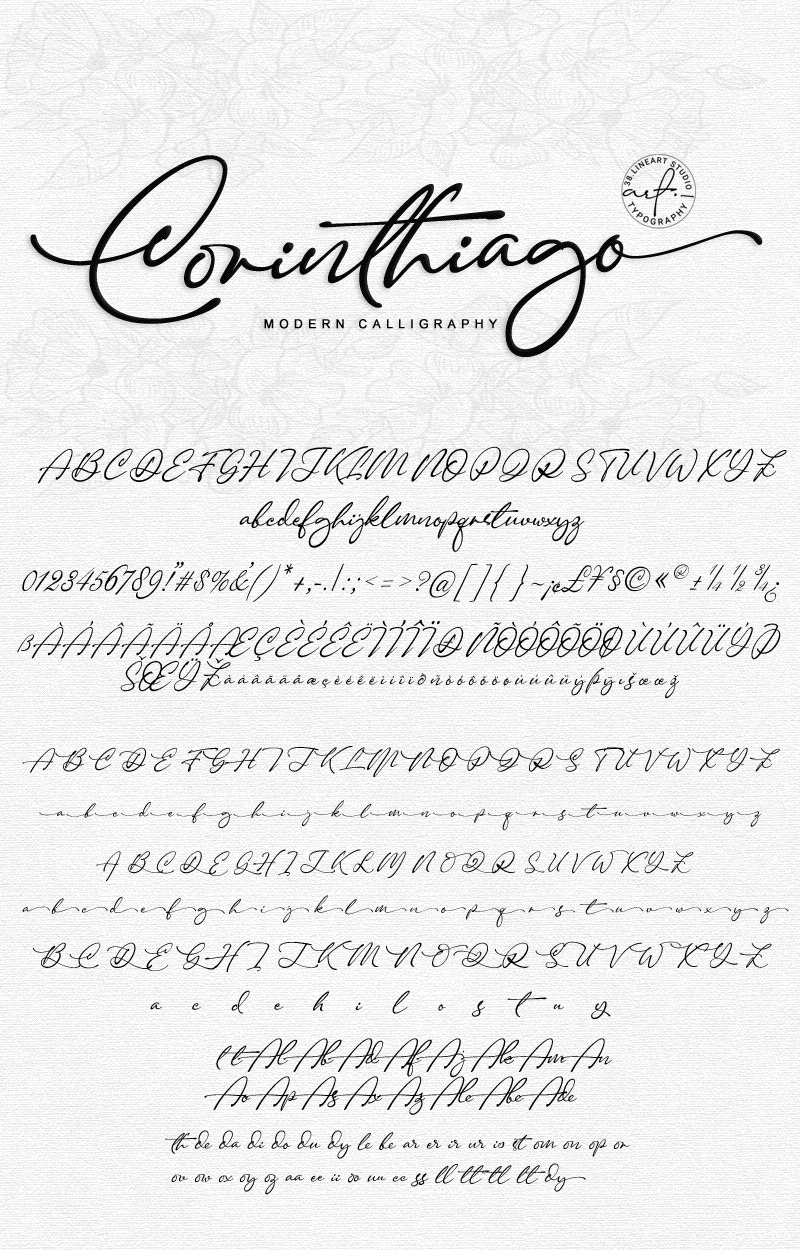 38.LINEART STUDIO
art.
TYPOGRAPHY
Corinthiago
MODERN CALLIGRAPHY
ABCDEFGHIJKLMNOPQRSTUVWXYZ
abcdefghijklmnopqrstuvwxyz
0123456789!"#$%&'()*+,-./:;<=>?@[]{}~¡¢£¥§©«®±¼½¾¿
ßÀÁÂÃÄÅÆÇÈÉÊËÌÍÎÏÐÑÒÓÔÕÖØÙÚÛÜÝÞ
ŠŒŸŽàáâãäåæçèéêëìíîïðñòóôõöøùúûüýþÿışœœž
ABCDEFGHIJKLMNOPQRSTUVWXYZ
a b c d e f g h i j k l m n o p q r s t u v w x y z
ABCDEFGHIJKLMNOQRSUVWXYZ
a b c d e f g h i j k l m n o p q r s t u v w x y z
BCDEGHIJKMNOQRSUVWXYZ
a c d e h i l o s t u y
tt Al Ab Ad Af Az Ake Am An
Ao Ap As Ax Az Ale Abe Ade
th de da di do du dy le be ar er ir ur is st om on op or
ov ow ox oy oz aa ee ii oo uu cc ss ll tt tl lt dy